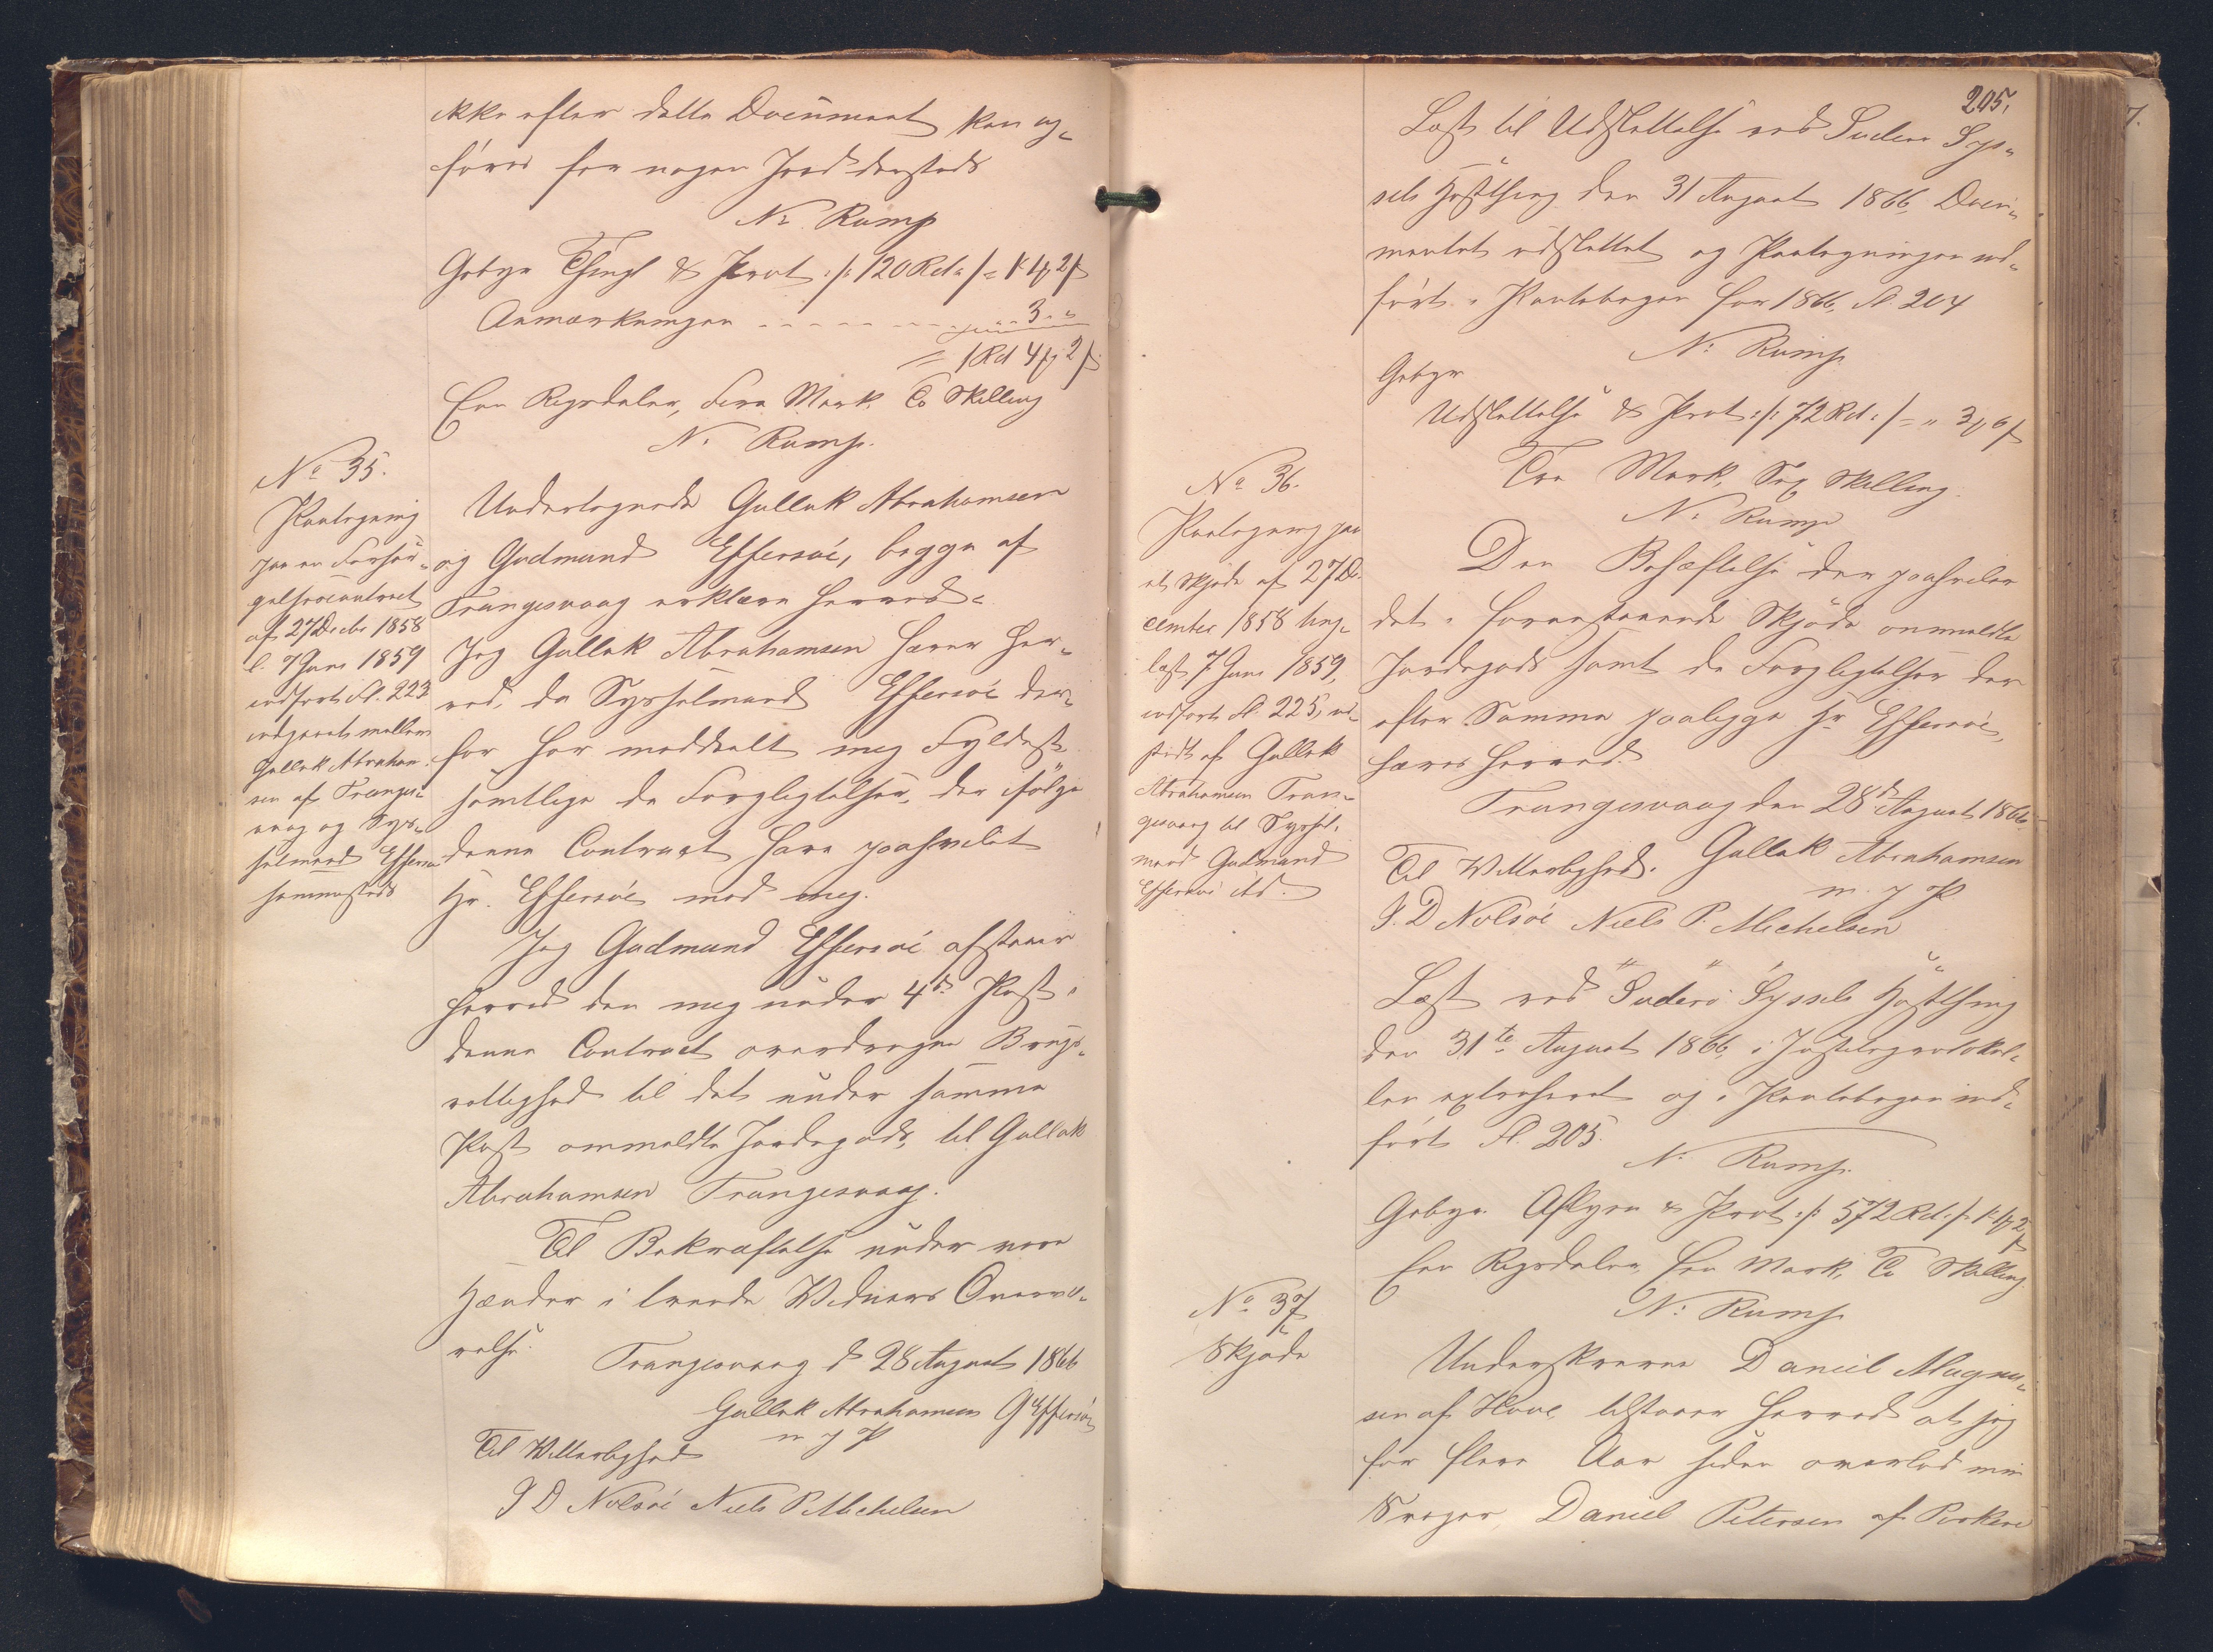 ikke efter dette Document kan og-
föres for nogen Jord dersteds
N. Rump
Gebyr Thingl & Prot :/: 120 Rd :/: = 1" 1 ℔ 2 ß
Anmærkningen - - - - - - - " 3 " "
= 1 Rd 4 ℔ 2 ß
Een Rigsdaler, Fire Mark To Skilling
N. Rump.
No 35.
Paategning
paa en Forsör-
gelsescontract
af 27 Decbr 1858
l. 7 Juni 1859
indfort Fl. 223
indgaaet mellem
Gullak Abraham-
sen af Tranges-
vaag og Sys-
selmand Effersöe
sammesteds
Undertegnede Gullak Abrahamsen
og Gudmund Effersöe, begge af
Trangesvaag erklære herved:
Jeg Gullak Abrahamsen hæver her-
ved, da Sysselmand Effersöe der-
for har meddeelt mig Fyldest,
samtlige de Forpligtelser, der ifölge
denne Contract have paahvilet
Hr. Effersöe mod mig.
Jeg Gudmund Effersöe afstaaer
herved den mig under 4de Post i
denne Contract overdragne Brugs-
rettighed til det under samme
Post ommeldte Jordegods, til Gullak
Abrahamsen Trangesvaag.
Til Bekræftelse under vore
Hænder i tvende Vidners Overvæ-
relse.
Trangesvaag d. 28 August 1866
Gullak Abrahamsen G Effersöe
m. f. P.
Til Vitterlighed
J D Nolsöe Niels P. Michelsen
205.
Læst til Udslettelse ved Suderö Sys-
sels Høstthing den 31 August 1866, Docu-
mentet udslettet og Paategningen ind-
fört i Pantebogen for 1866, Fl. 204
N. Rump.
Gebyr
Udslettelse & Prot :/: 72 Rd :/: = " 3 ℔ 6 ß
Tre Mark, Sex Skilling.
N. Rump
No 36.
Paategning paa
et Skjøde af 27 De-
cember 1858 ting-
læst 7 Juni 1859,
indfort Fl. 225, ud-
stedt af Gullak
Abrahamsen Tran-
gesvaag til Syssel-
mand Gudmund
Effersöe ibd.
Den Behæftelse der paahviler
det i foranstaaende Skjöde ommeldte
Jordegods samt de Forpligtelser der
efter Samme paaligge Hr Effersöe,
hæves herved.
Trangesvaag den 28de August 1866
Til Vitterlighed. Gullak Abrahamsen
m. f. P
J. D Nolsöe Niels P. Michelsen
Læst ved Suderö Syssels Höstthing
den 31te August 1866, i Justitsprotokol-
len extraheret og i Pantebogen ind-
fört Fl. 205.
N. Rump.
Gebyr Aflysn & Prot :/: 572 Rd :/: 1" 1 ℔ 2 ß
Een Rigsdaler, Een Mark, To Skilling.
N. Rump
No 37
Skjøde
Underskrevne Daniel Magnu-
sen af Hove, tilstaaer herved at jeg
for flere Aar siden overlod min
Svoger, Daniel Petersen af Porkere